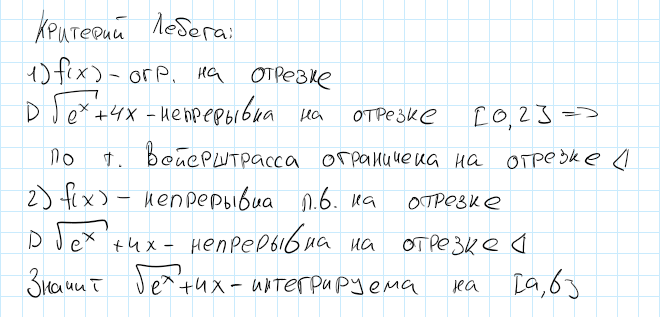 Критерий Лебега:
1) f(x) - огр. на отрезке
▷ √e^x + 4x - непрерывна на отрезке [0,2] =>
по т. Вейерштрасса ограничена на отрезке ◁
2) f(x) - непрерывна п.в. на отрезке
▷ √e^x + 4x - непрерывна на отрезке ◁
Значит √e^x + 4x - интегрируема на [a,b]